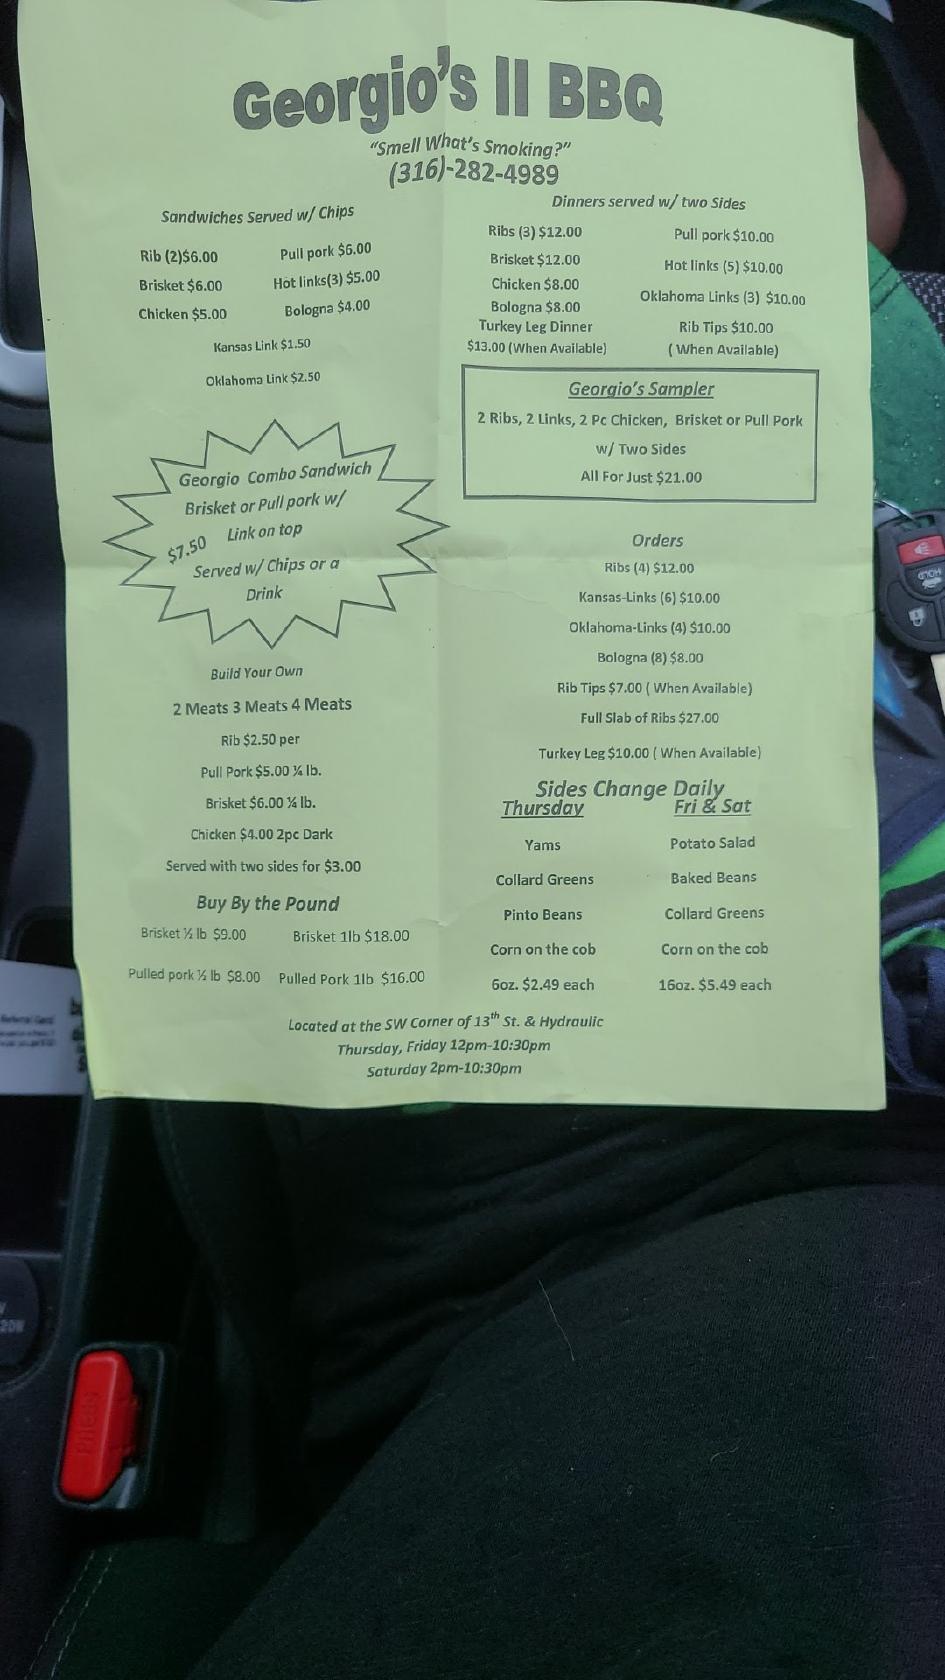 Georgio's II BBQ
"Smell What's Smoking?"
(316)-282-4989
Sandwiches Served w/ Chips
Rib (2)$6.00
Pull pork $6.00
Brisket $6.00
Hot links(3) $5.00
Chicken $5.00
Bologna $4.00
Kansas Link $1.50
Oklahoma Link $2.50
Georgio Combo Sandwich
Brisket or Pull pork w/
Link on top
$7.50
Served w/ Chips or a
Drink
Build Your Own
2 Meats 3 Meats 4 Meats
Rib $2.50 per
Pull Pork $5.00 ¼ lb.
Brisket $6.00 ¼ lb.
Chicken $4.00 2pc Dark
Served with two sides for $3.00
Buy By the Pound
Brisket ½ lb $9.00
Brisket 1lb $18.00
Pulled pork ½ lb $8.00
Pulled Pork 1lb $16.00
Dinners served w/ two Sides
Ribs (3) $12.00
Pull pork $10.00
Brisket $12.00
Hot links (5) $10.00
Chicken $8.00
Bologna $8.00
Oklahoma Links (3) $10.00
Turkey Leg Dinner
$13.00 (When Available)
Rib Tips $10.00
( When Available)
Georgio's Sampler
2 Ribs, 2 Links, 2 Pc Chicken, Brisket or Pull Pork
w/ Two Sides
All For Just $21.00
Orders
Ribs (4) $12.00
Kansas-Links (6) $10.00
Oklahoma-Links (4) $10.00
Bologna (8) $8.00
Rib Tips $7.00 ( When Available)
Full Slab of Ribs $27.00
Turkey Leg $10.00 ( When Available)
Sides Change Daily
Thursday
Fri & Sat
Yams
Potato Salad
Collard Greens
Baked Beans
Pinto Beans
Collard Greens
Corn on the cob
Corn on the cob
6oz. $2.49 each
16oz. $5.49 each
Located at the SW Corner of 13th St. & Hydraulic
Thursday, Friday 12pm-10:30pm
Saturday 2pm-10:30pm
HOLD